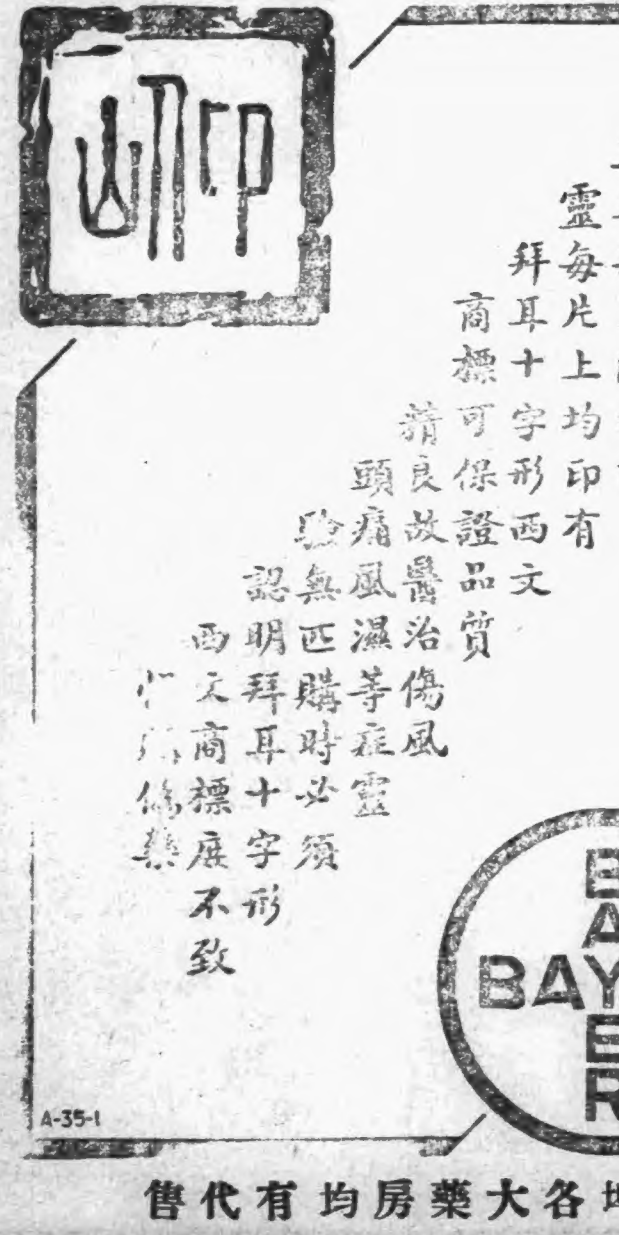 靈每片上均印有
拜耳十字形西文
商標可保證品質
精良故醫治傷風
頭痛風濕等症靈
驗無匹購時必須
認明拜耳十字形
西文商標庶不致
偽藥
BAY
A-35-1
各大藥房均有代售